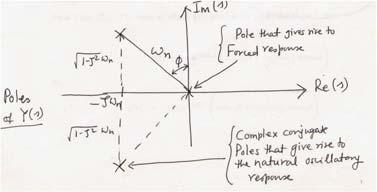 Im(s)
Pole that gives rise to
Forced response
√1-ζ² ωn
ωn
ϕ
Re(s)
Poles
of Y(s)
-ζωn
√1-ζ² ωn
Complex conjugate
Poles that give rise to
the natural oscillatory
response